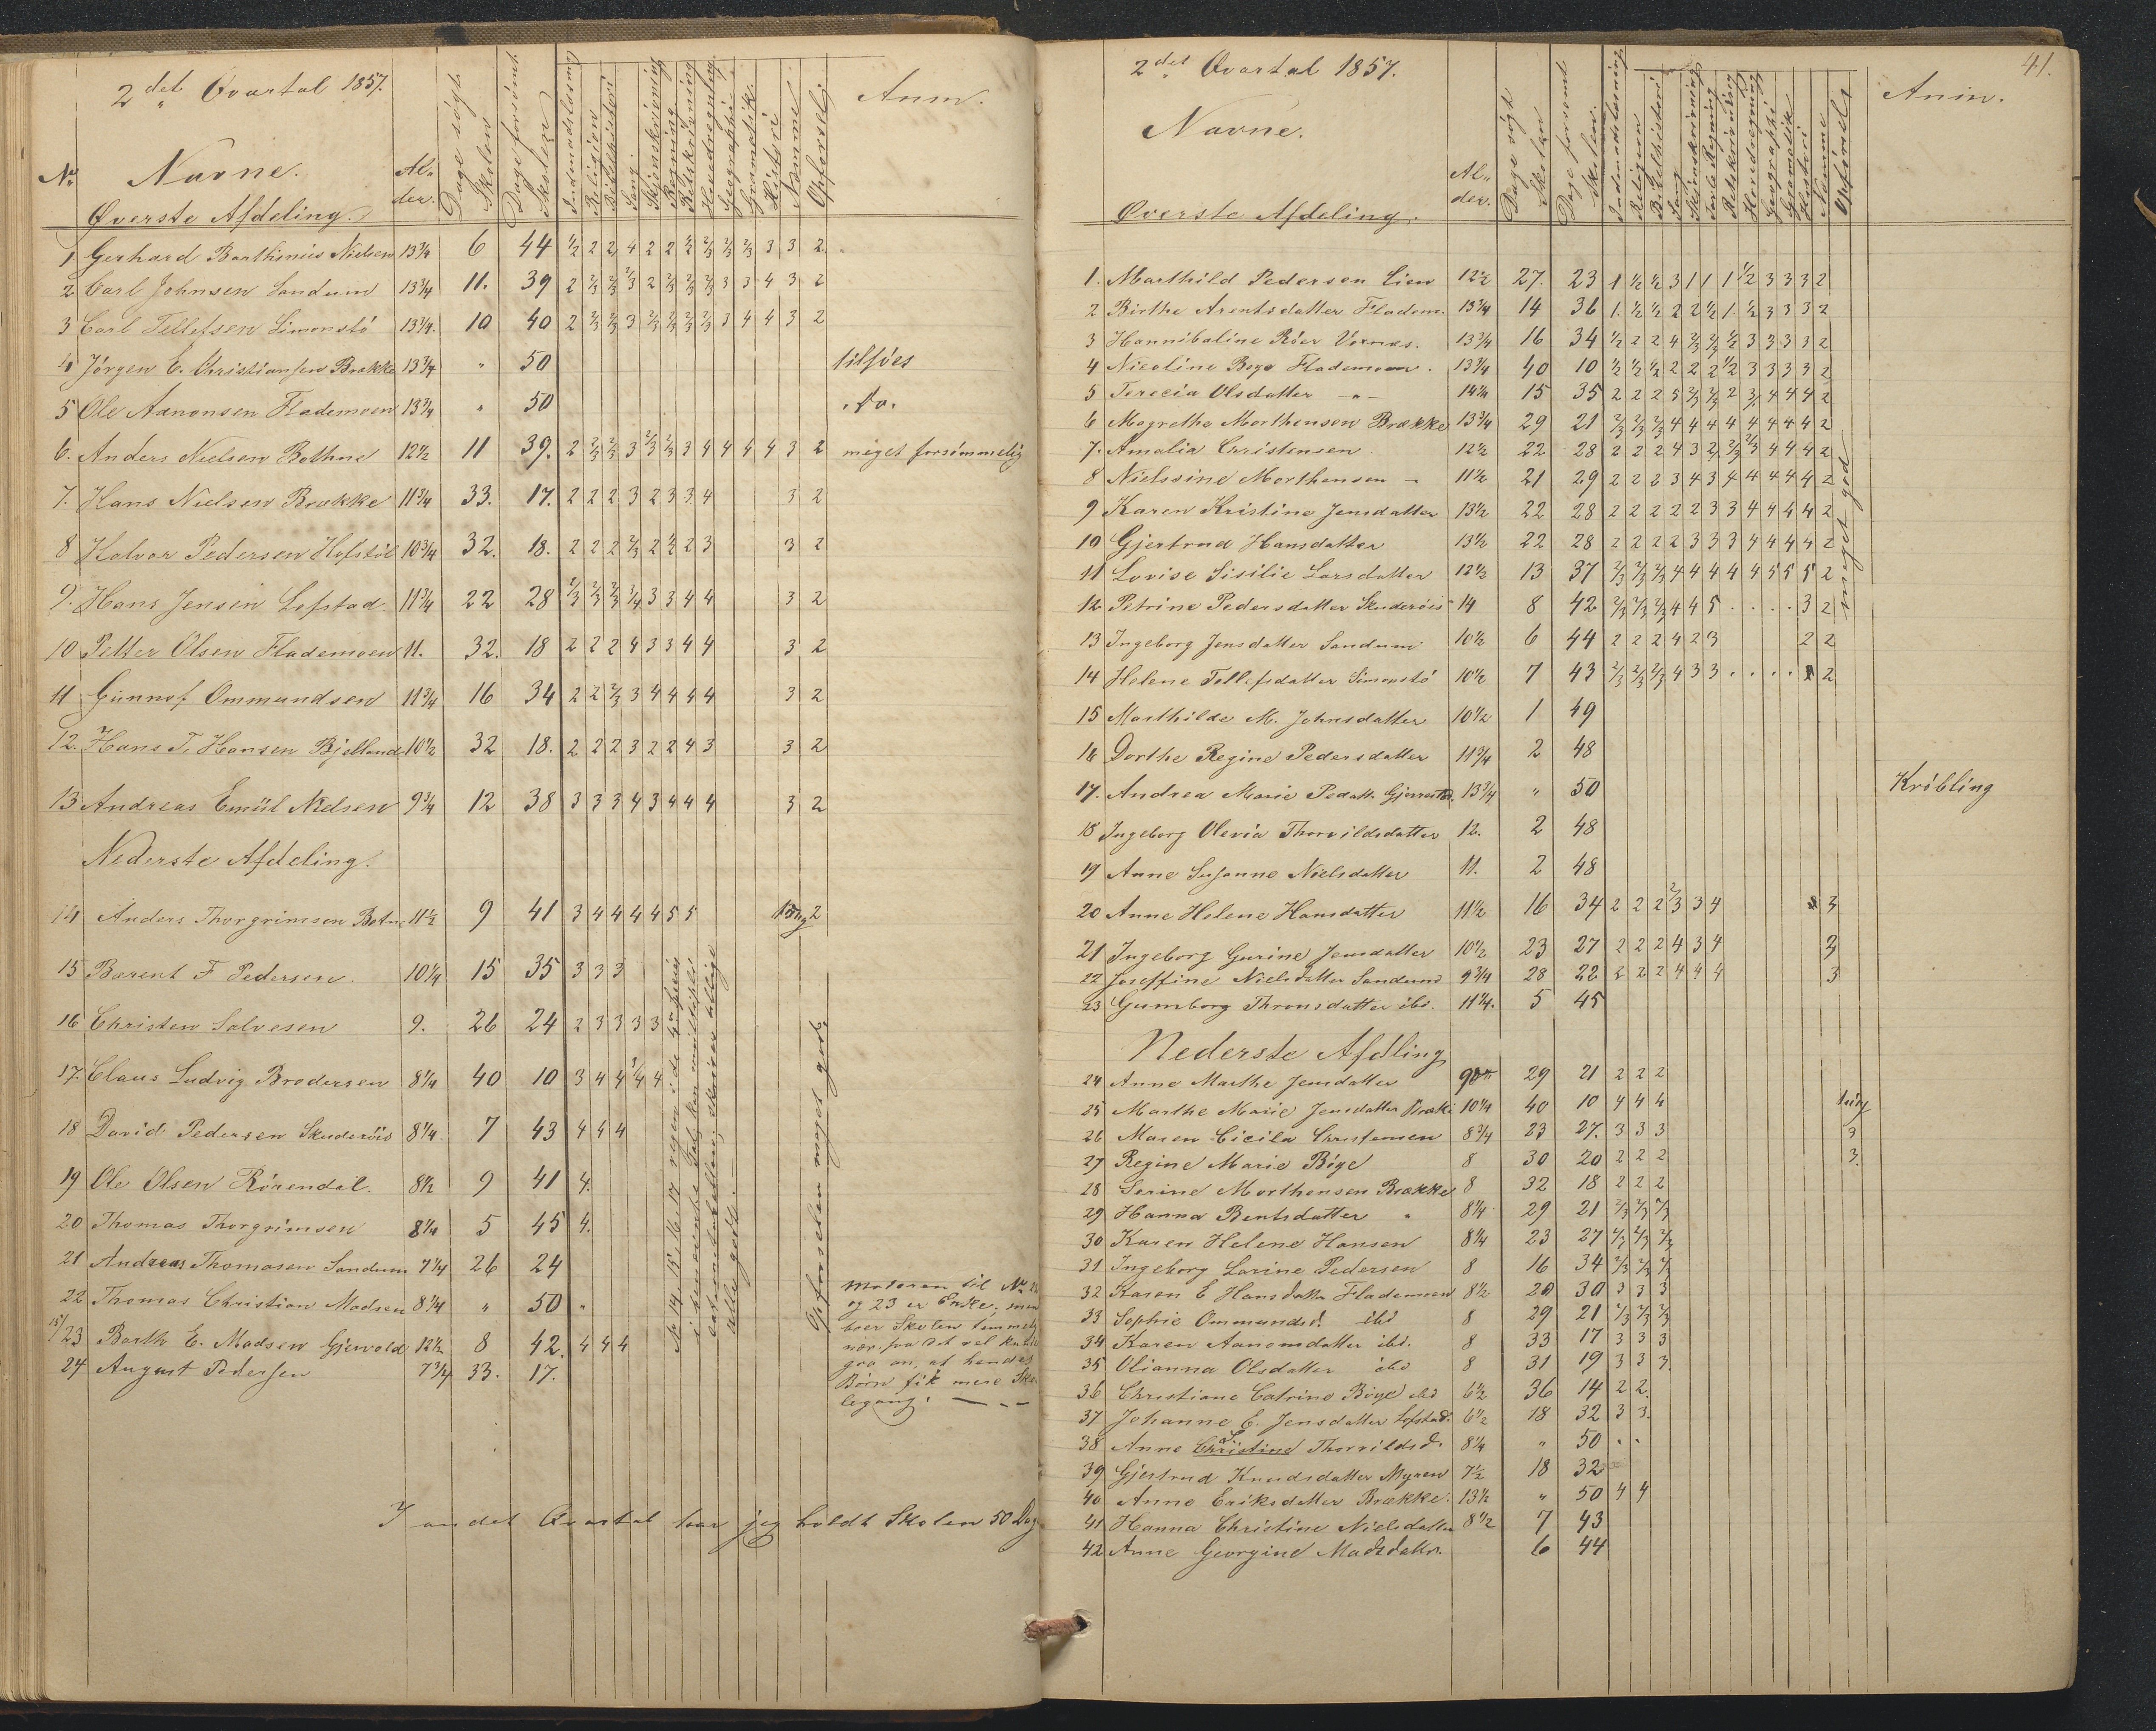 2det Qvartal 1857.
No Navne. Alder. Dage søgt Skolen Dage forsömt Skolen Indenadslæsning Religion Bibelhistori Sang Skjönskrivning Regning Retskrivning Hovedregning Geographi Gramatik Histori Nemme Opförsel Anm.
Øverste Afdeling.
1 Gerhard Barthineus Nielsen 13¾ 6 44 ½ 2 2 4 2 2 ½ 2/3 2/3 2/3 3 3 2
2 Carl Johnsen Sandum 13¾ 11. 39 2 2/3 2/3 2/3 2 2/3 2/3 2/3 3 3 4 3 2
3 Carl Tellefsen Simonstö 13¼. 10 40 2 2/3 2/3 3 2/3 2/3 2/3 2/3 3 4 4 3 2
4 Jörgen E. Christiansen Brække 13¾ " 50 tilsöes
5 Ole Aanonsen Flademoen 13¾ " 50 . do.
6. Anders Nielsen Bothne 12½ 11 39. 2 2/3 2/3 3 2/3 2/3 3 4 4 4 4 3 2 meget forsömmelig
7. Hans Nielsen Brække 11¾ 33. 17. 2 2 2 3 2 3 3 4 3 2
8 Halvor Pedersen Hofstöl 10¾ 32. 18. 2 2 2 2/3 2 ½ 2 3 3 2
9. Hans Jensen Lofstad 11¾ 22 28 2/3 2/3 2/3 ¾ 3 3 4 4 3 2
10 Petter Olsen Flademoen 11. 32. 18 2 2 2 4 3 3 4 4 3 2
11 Gunnof Ommundsen 11¾ 16 34 2 2 2/3 3 4 4 4 4 3 2
12. Hans T. Hansen Bjelland 10½ 32 18. 2 2 2 3 2 2 4 3 3 2
13 Andreas Emiil Nielsen 9¾ 12 38 3 3 3 4 3 4 4 4 3 2
Nederste Afdeling.
14 Anders Thorgrimsen Botne 11½ 9 41 3 4 4 4 4 5 5 2
15 Barent F Pedersen. 10¼ 15 35 3 3 3
16 Christen Salvesen 9. 26 24 2 3 3 3 3
17. Claus Ludvig Brodersen 8¼ 40 10 3 4 4 ¾ 4
18 David Pedersen Skuderöis 8¼. 7 43 4 4 4
19 Ole Olsen Rörendal. 8½ 9 41 4.
20 Thomas Thorgrimsen 8¼ 5 45 4.
21 Andreas Thomasen Sandum 7¼ 26 24
22 Thomas Christian Madsen 8¼ " 50 "
23 Barth E. Madsen Gjervold 12½ 8 42. 4 4 4
24 August Pedersen 7¾ 33. 17.
Opförselen meget god.
Moderen til No 22
og 23 er Enke, men
boer Skolen temmelig
nær, saa det vel kunde
gaa an, at hendes
Börn fik mere Sko
legang.
I andet Qvartal har jeg holdt Skolen 50 Dage
41.
2det Qvartal 1857.
Navne. Alder. Dage søgt Skolen Dage forsömt Skolen. Indenadslæsning Religion Bibelhistori Sang Skjönskrivning Tavle Regning Retskrivning Hovedregning Geographi Gramatik Histori Nemme Opförsel Anm.
Øverste Afdeling.
1. Marthild Pedersen Lien 12½ 27. 23 1 ½ ½ 3 1 1 1 ½ 3 3 3 2
2 Birthe Arentsdatter Fladem. 13¾ 14 36 1. ½ ½ 2 2 ½ 1. ½ 3 3 3 2
3 Hannibaline Röer Vornæs. 13¾ 16 34 ½ 2 2 4 2/3 2/3 ½ 3 3 3 3 2
4 Nicoline Boye Flademoen. 13¾ 40 10 ½ ½ ½ 2 2 2 ½ 3 3 3 3 2
5 Terecia Olsdatter -"- 14¼ 15 35 2 2 2 5 2/3 2/3 2 3/ 4 4 4 2
6 Magrethe Morthensen Brække 13¾ 29 21 2/3 2/3 2/3 4 4 4 4 4 4 4 4 2
7. Amalia Christensen 12½ 22 28 2 2 2 4 3 2 2/3 2/3 4 4 4 2
8 Nielssine Morthensen - 11½ 21 29 2 2 2 3 4 3 4 4 4 4 4 2
9 Karen Kristine Jensdatter 13½ 22 28 2 2 2 2 2 3 3 4 4 4 4 2
10 Gjertrud Hansdatter 13½ 22 28 2 2 2 2 3 3 3 4 4 4 4 2
11 Lovise Sisilie Larsdatter 12½ 13 37 2/3 2/3 2/3 4 4 4 4 4 5 5 5 2
12 Petrine Pedersdatter Skuderöis 14 8 42 2/3 2/3 2/3 4 4 5 . . . . 3 2
13 Ingeborg Jensdatter Sandum 10½ 6 44 2 2 2 4 2 3 2 2
14 Helene Tellefsdatter Simonstö 10½ 7 43 2/3 2/3 2/3 4 3 3 . . . . 2
15 Marthilde M. Johnsdatter 10½ 1 49
16 Dorthe Regine Pedersdatter 11¾ 2 48
17. Andrea Marie Pedatt. Gjerrestad. 13¾ " 50 Kröbling
18 Ingeborg Olevia Thorvildsdatter 12. 2 48
19 Anne Susanne Nielsdatter 11. 2 48
20 Anne Helene Hansdatter 11½ 16 34 2 2 2 2/3 3 4 3
21 Ingeborg Gurine Jensdatter 10½ 23 27 2 2 2 4 3 4 3
22 Joseffine Nielsdatter Sandum 9¾ 28 22 2 2 2 4 4 4 3
23 Gumborg Thronsdatter ibd. 11¼. 5 45
meget god
Nederste Afdling
24 Anne Marthe Jensdatter 9 29 21 2 2 2
25 Marthe Marie Jensdatter Bræke 10¼ 40 10 4 4 4
26 Maren Cicila Christensen 8¾ 23 27. 3 3 3 3
27 Regine Marie Böye 8 30 20 2 2 2 3.
28 Serine Morthensen Brække 8 32 18 2 2 2
29 Hanna Bentsdatter " 8¼ 29 21 2/3 2/3 2/3
30 Karen Helene Hansen 8¼ 23 27 2/3 2/3 2/3
31 Ingeborg Larine Pedersen 8 16 34 2/3 2/3 2/3
32 Karen E Hansdatter Flademoen 8½ 20 30 3 3 3
33 Sophie Ommundsd. ibd 8 29 21 2/3 2/3 2/3
34 Karen Aanonsdatter ibd. 8 33 17 3 3 3
35 Olianna Olsdatter ibd 8 31 19 3 3 3.
36 Christiane Catrine Böye ibd 6½ 36 14 2 2.
37 Johanne E. Jensdatter Lofstad. 6½ 18 32 3 3.
38 Anne Christine Thorvildsd. 8¼ " 50 " "
39 Gjertrud Knudsdatter Myren 7½ 18 32
40 Anne Eriksdatter Brække. 13½ " 50 4 4
41 Hanna Christine Nielsdatter 8½ 7 43
42 Anne Georgine Madsdatter. 6 44